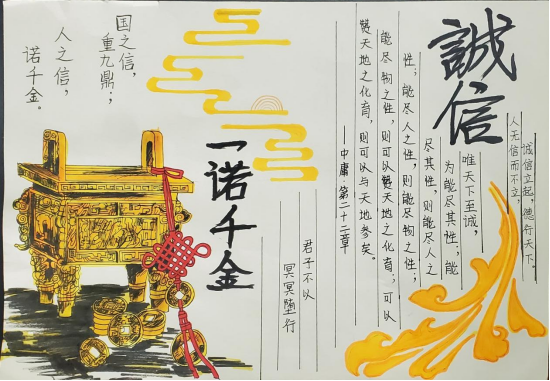 誠信
诚信立起，德行天下。
人无信而不立，
唯天下至诚，
为能尽其性；能
尽其性，则能尽人之
性；能尽人之性，则能尽物之性；
能尽物之性，则可以赞天地之化育；可以
赞天地之化育，则可以与天地参矣。
——中庸 第二十二章
君子不以
冥冥堕行
一诺千金
国之信，
重九鼎；
人之信，
诺千金。